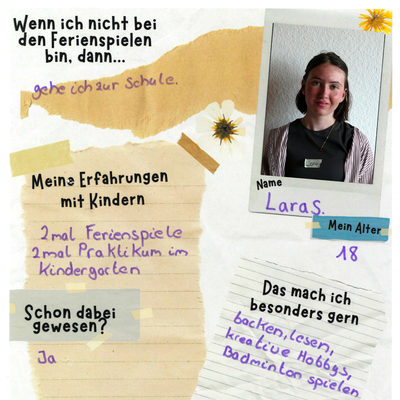 Wenn ich nicht bei
den Ferienspielen
bin, dann...
gehe ich zur Schule.
Name
Lara S.
Mein Alter
18
Meine Erfahrungen
mit Kindern
2 mal Ferienspiele
2 mal Praktikum im
Kindergarten
Schon dabei
gewesen?
Ja
Das mach ich
besonders gern
backen, lesen,
kreative Hobbys,
Badminton spielen